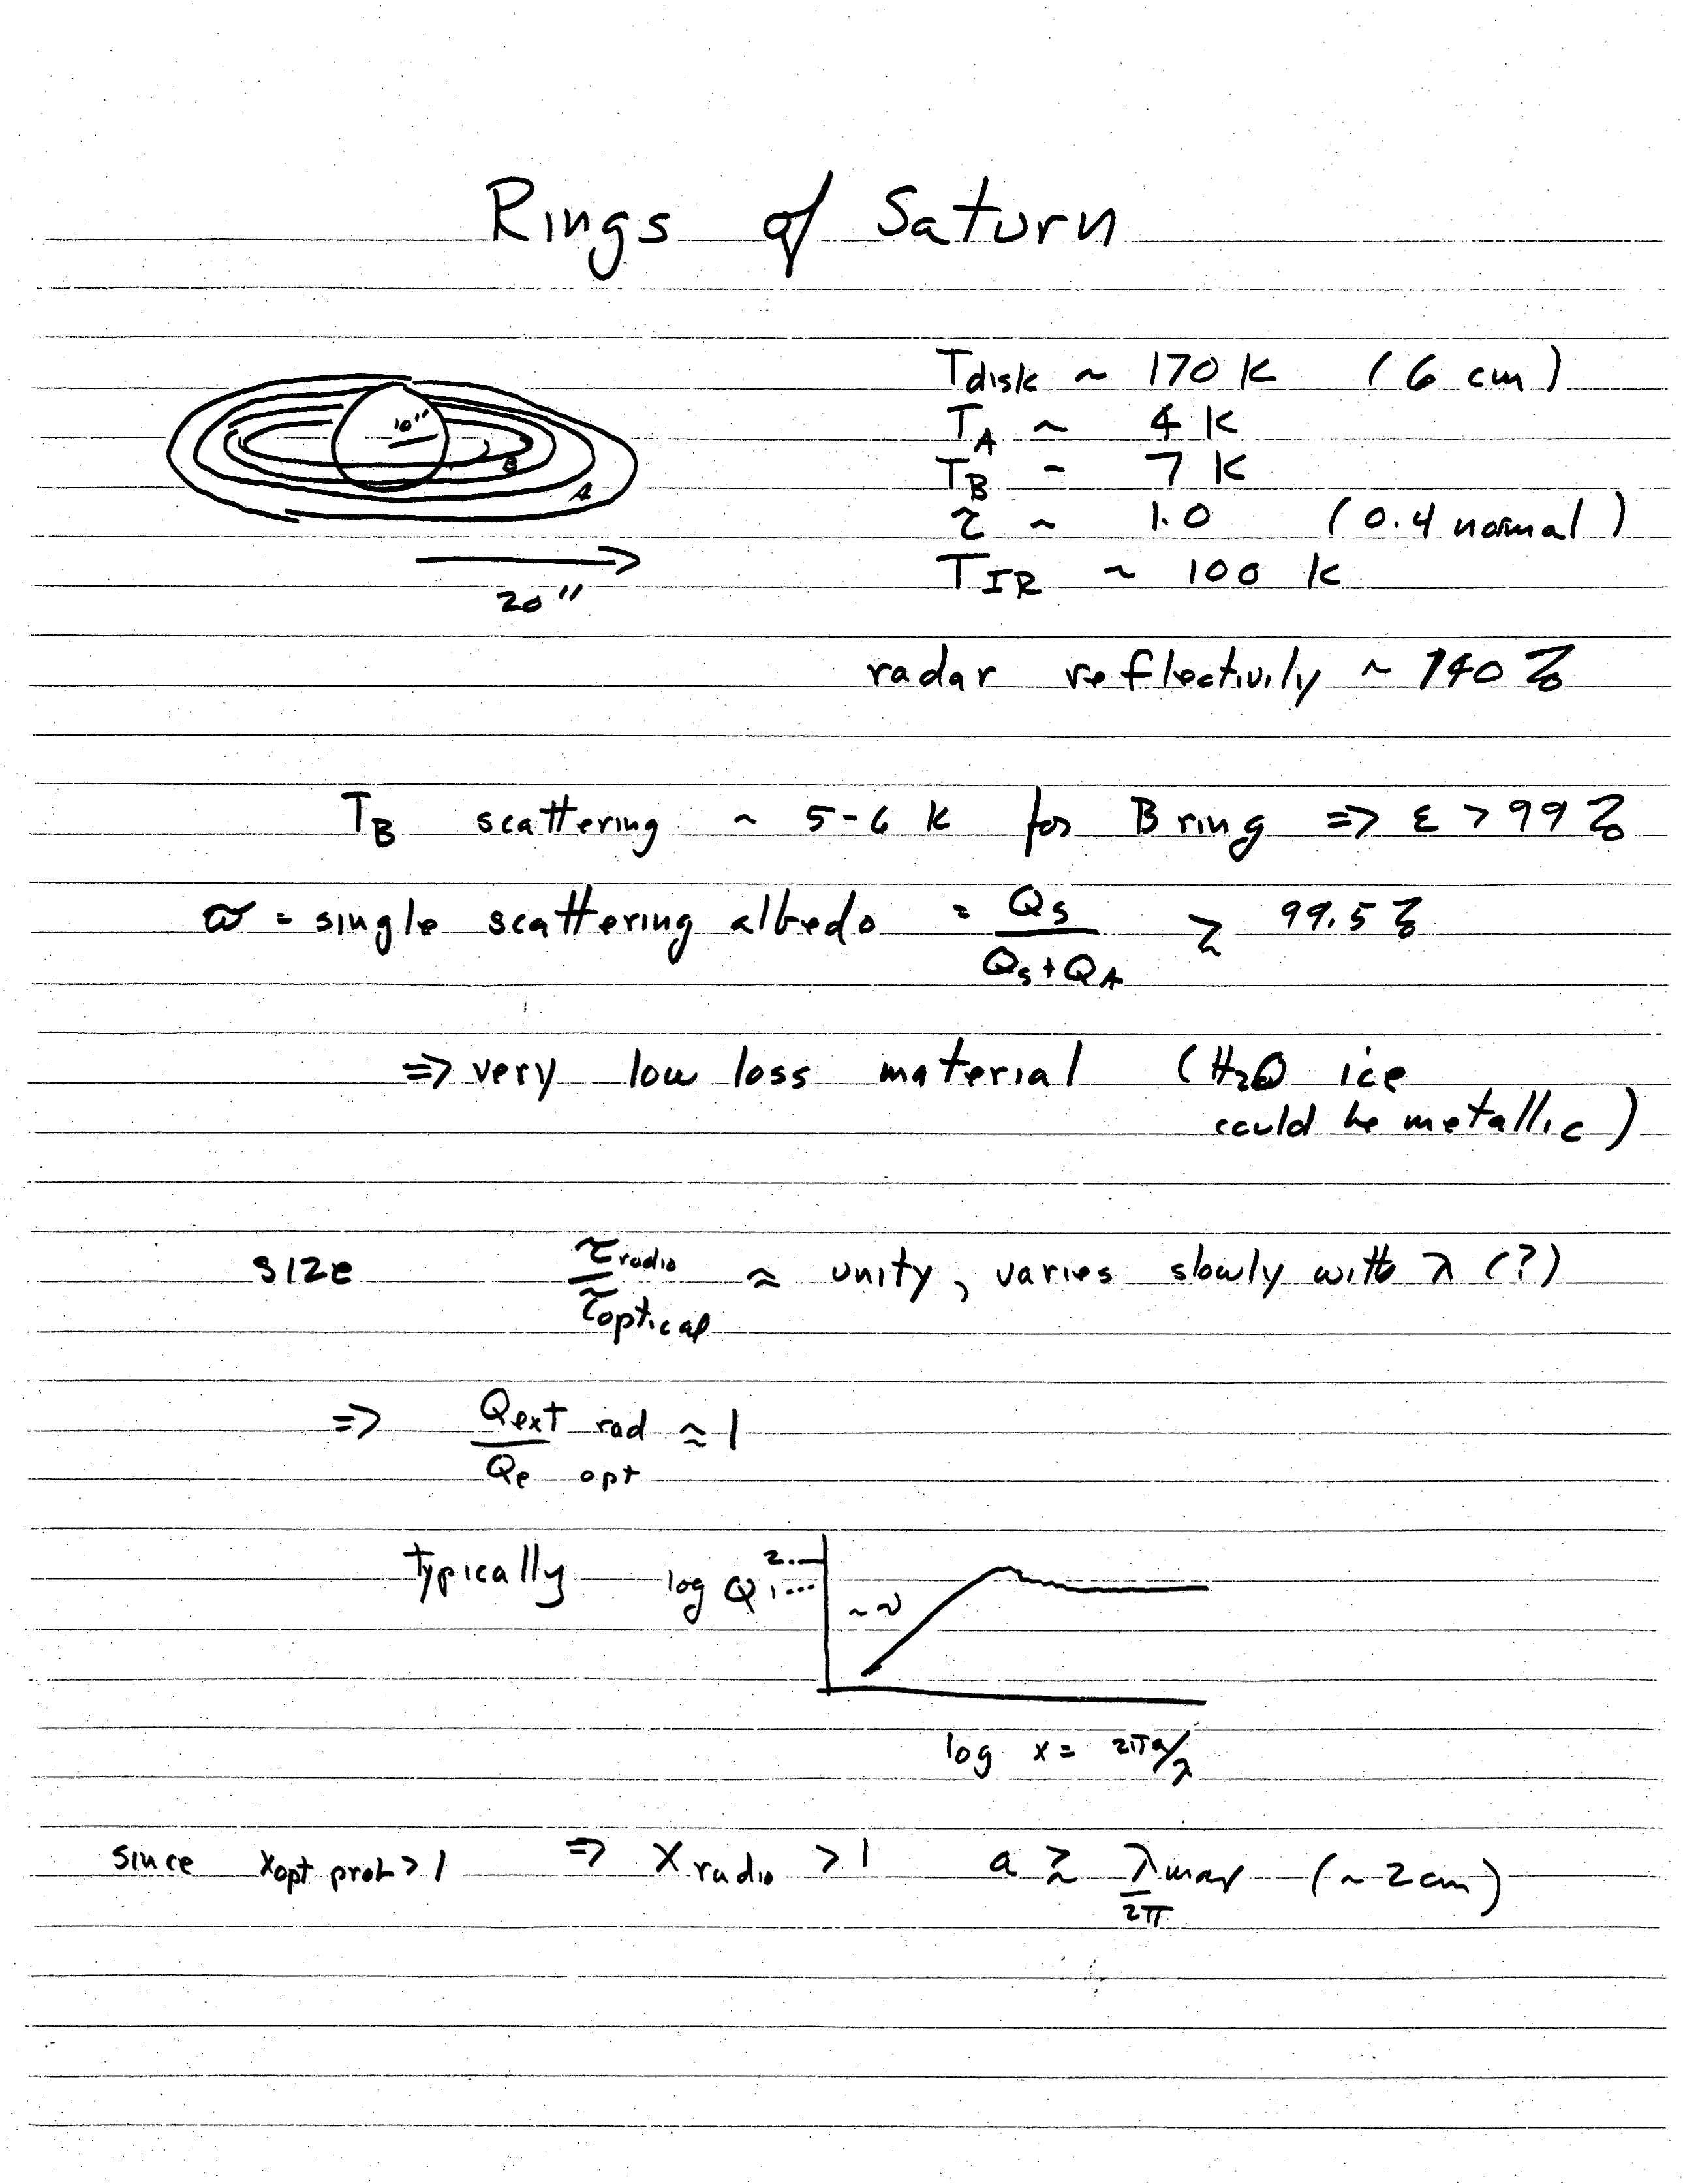 Rings of Saturn
10"
B
A
20"
Tdisk ~ 170 K (6 cm)
T_A ~ 4 K
T_B ~ 7 K
τ ~ 1.0 (0.4 normal)
T_IR ~ 100 K
radar reflectivity ~ 140 %
T_B scattering ~ 5-6 K for B ring => ε > 99 %
ϖ = single scattering albedo = Q_S / (Q_S + Q_A) ≳ 99.5 %
=> very low loss material (H2O ice
could be metallic)
size τradio / τoptical ≈ unity, varies slowly with λ (?)
=> Qext rad / Qe opt ≈ 1
Typically log Q 2 1 ~ν
log x = 2πa/λ
since xopt prob > 1 => X radio > 1 a ≳ λmax / 2π (~ 2 cm)